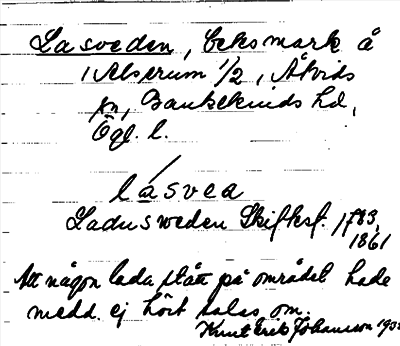 Lasveden, beksmark å
1 Alserum 1/2, Åtvids
sn, Bankekinds hd,
Ögl. l.
låsvea
Ladusweden Skifksf. 1783,
1861
Att någon lada stått på området hade
medd. ej hört talas om.
Knut Erik Johansson